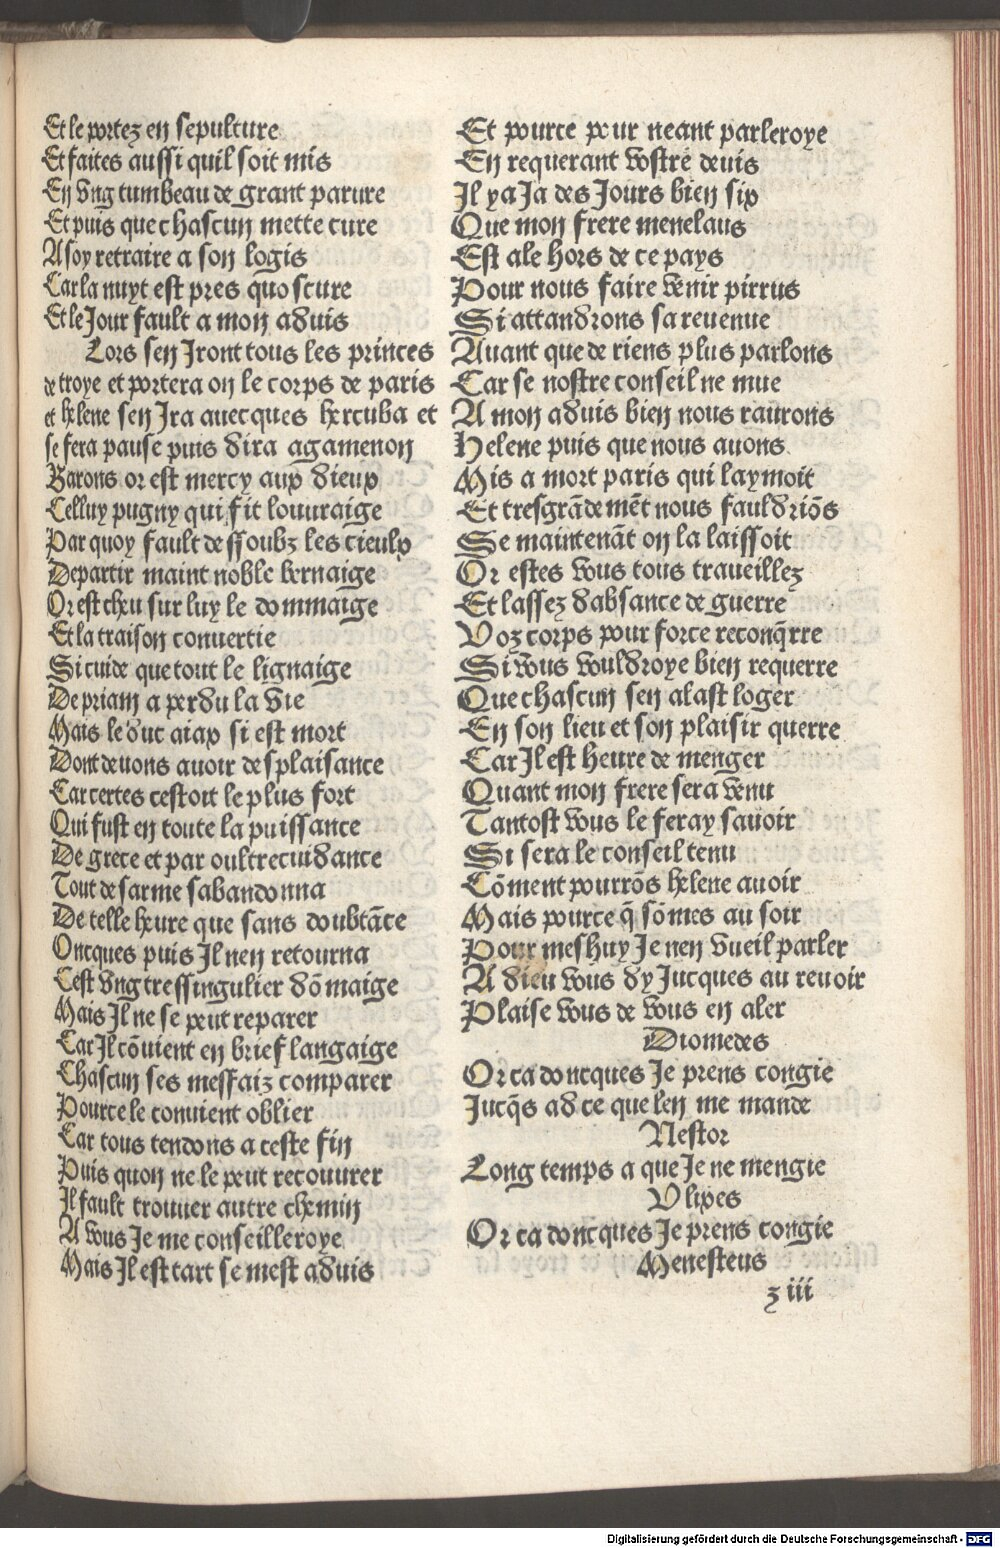 Et le portez en sepulture
Et faites aussi quil soit mis
En vng tumbeau de grant parure
Et puis que chascun mette cure
A soy retraire a son logis
Car la nuyt est pres quoscure
Et le Jour fault a mon aduis
Lors sen Jront tous les princes
de troye et portera on le corps de paris
et helene sen Jra auecques hercuba et
se fera pause puis dira agamenon
Barons or est mercy aux dieux
Celluy pugny qui fit louuraige
Par quoy fault dessoubz les cieulx
Departir maint noble bernaige
Or est cheu sur luy le dommaige
Et la traison conuertie
Si cuide que tout le lignaige
De priam a perdu la vie
Mais le duc aiax si est mort
Dont deuons auoir desplaisance
Car certes cestoit le plus fort
Qui fust en toute la puissance
De grece et par oultrecuidance
Tout desarme sabandonna
De telle heure que sans doubtãce
Oncques puis Jl nen retourna
Cest vng tressingulier dõmaige
Mais Jl ne se peut reparer
Car Jl cõuient en brief langaige
Chascun ses messaiz comparer
Pource le conuient oblier
Car tous tendons a ceste fin
Puis quon ne le peut recouurer
Jl fault trouuer autre chemin
A vous Je me conseilleroye
Mais Jl est tart se mest aduis
Et pource pour neant parleroye
En requerant vostre deuis
Jl ya Ja des Jours bien six
Que mon frere menelaus
Est ale hors de ce pays
Pour nous faire venir pirrus
Si attandrons sa reuenue
Auant que de riens plus parlons
Car se nostre conseil ne mue
A mon aduis bien nous raurons
Helene puis que nous auons
Mis a mort paris qui laymoit
Et tresgrãdemẽt nous fauldriõs
Se maintenãt on la laissoit
Or estes vous tous traueillez
Et lassez dabsance de guerre
Voz corps pour force reconq̃rre
Si vous vouldroye bien requerre
Que chascun sen alast loger
En son lieu et son plaisir querre
Car Jl est heure de menger
Quant mon frere sera venu
Tantost vous le feray sauoir
Si sera le conseil tenu
Cõment pourrõs helene auoir
Mais pource q̃ sõmes au soir
Pour meshuy Je nen vueil parler
A dieu vous dy Jucques au reuoir
Plaise vous de vous en aler
Diomedes
Or ca doncques Je prens congie
Jucq̃s ad ce que len me mande
Nestor
Long temps a que Je ne mengie
Vlixes
Or ca doncques Je prens congie
Menesteus
z iii
Digitalisierung gefördert durch die Deutsche Forschungsgemeinschaft - DFG